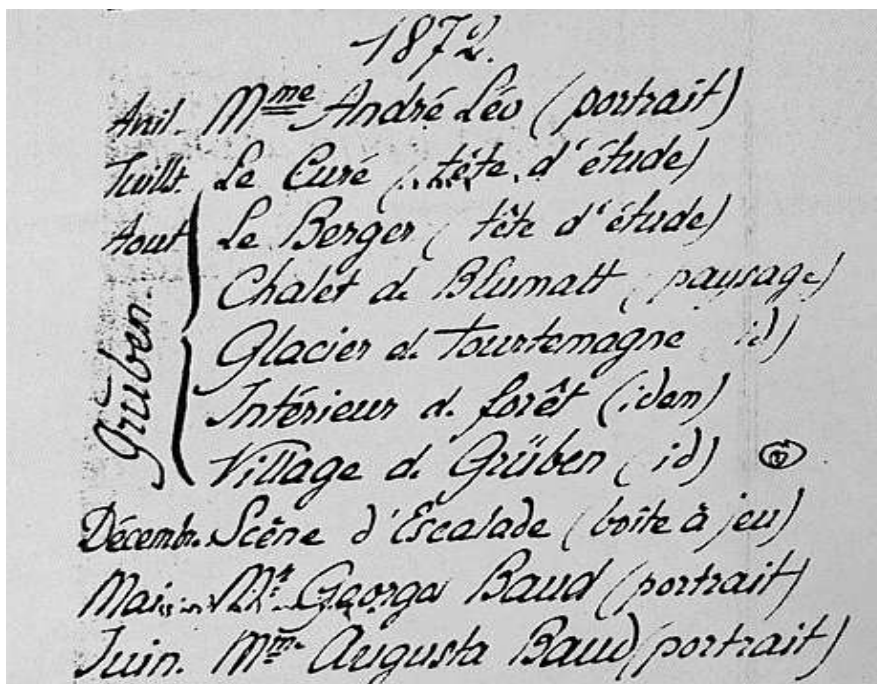 1872.
Avril. Mme André Léo (portrait)
Juillt. Le Curé (tête d'étude)
Aout Le Berger (tête d'étude)
Chalet d. Blumatt (paysage)
Glacier d. Tourtemagne id)
Intérieur d. forêt (idem)
Village d. Grüben (id)
Grüben.
Décembr. Scène d'Escalade (boîte à jeu)
Mai. Mr Georges Baud (portrait)
Juin. Mme Augusta Baud (portrait)